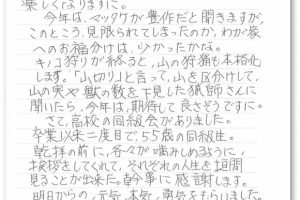 楽しくなりますに。
今年は、マツタケが豊作だと聞きますが、
このところ、見限られてしまったのか、わが家
へのお福分けは、少かったかな。
キノコ狩りが終ると、山の狩猟も本格化
します。「山切り」と言って、山を区分けして、
山の実や獣の数を下見した猟師さんに
聞いたら、今年は、期待して良さそうですに。
さて、高校の同級会がありました。
卒業以来二度目で、55歳の同級生。
乾杯の前に、各々が噛みしめるように、
挨拶をしてくれて、それぞれの人生を垣間
見ることが出来た。幹事に感謝します。
明日からの、元気、本気、勇気をもらいました。